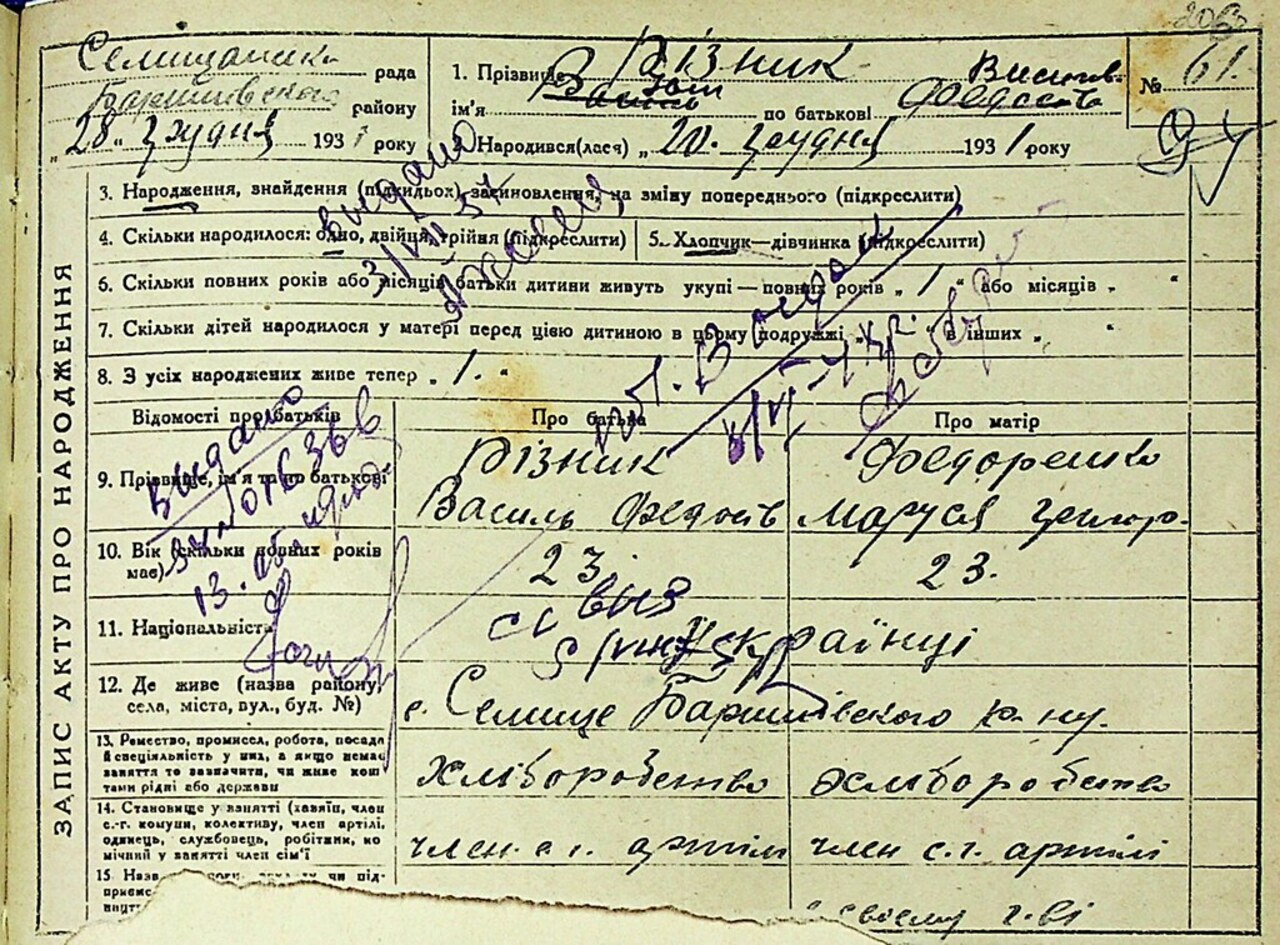 206
Селищанська рада
Баришівського району
„28“ грудня 1931 року
1. Прізвище Різник
ім'я Василь Іван по батькові Федосів Васильов.
Народився(лася) „20. грудня 1931 року
№ 61.
3. Народження, знайдення (підкидьох) засиновлення, на зміну попереднього (підкреслити)
4. Скільки народилося: одно, двійня, трійня (підкреслити)
5. Хлопчик—дівчинка (підкреслити)
6. Скільки повних років або місяців батьки дитини живуть укупі — повних років „ 1 “ або місяців „ “
7. Скільки дітей народилося у матері перед цією дитиною в цьому подружжі „ “ в інших „ “
8. З усіх народжених живе тепер „ 1. “
Відомості про батьків
Про батька
Про матір
9. Прізвище, ім'я та по батькові
Різник
Василь Федосів
Федоренко
Маруся Григор.
10. Вік (скільки повних років має)
23.
23.
11. Національність
Українці
12. Де живе (назва району, села, міста, вул., буд. №)
с. Селище Баришівського р-ну.
13. Ремество, промисел, робота, посада
й спеціяльність у них, а якщо немає
заняття то зазначити, чи живе кош
тами рідні або держави
Хліборобство
хліборобство
14. Становище у занятті (хазяїн, член
с.-г. комуни, колективу, член артілі,
одинець, службовець, робітник, по
мічний у занятті член сім'ї
член с. г. артілі
член с. г. артілі
15
своєму г-ві
ЗАПИС АКТУ ПРО НАРОДЖЕННЯ
Видано
3/VII 57
Видано
13.